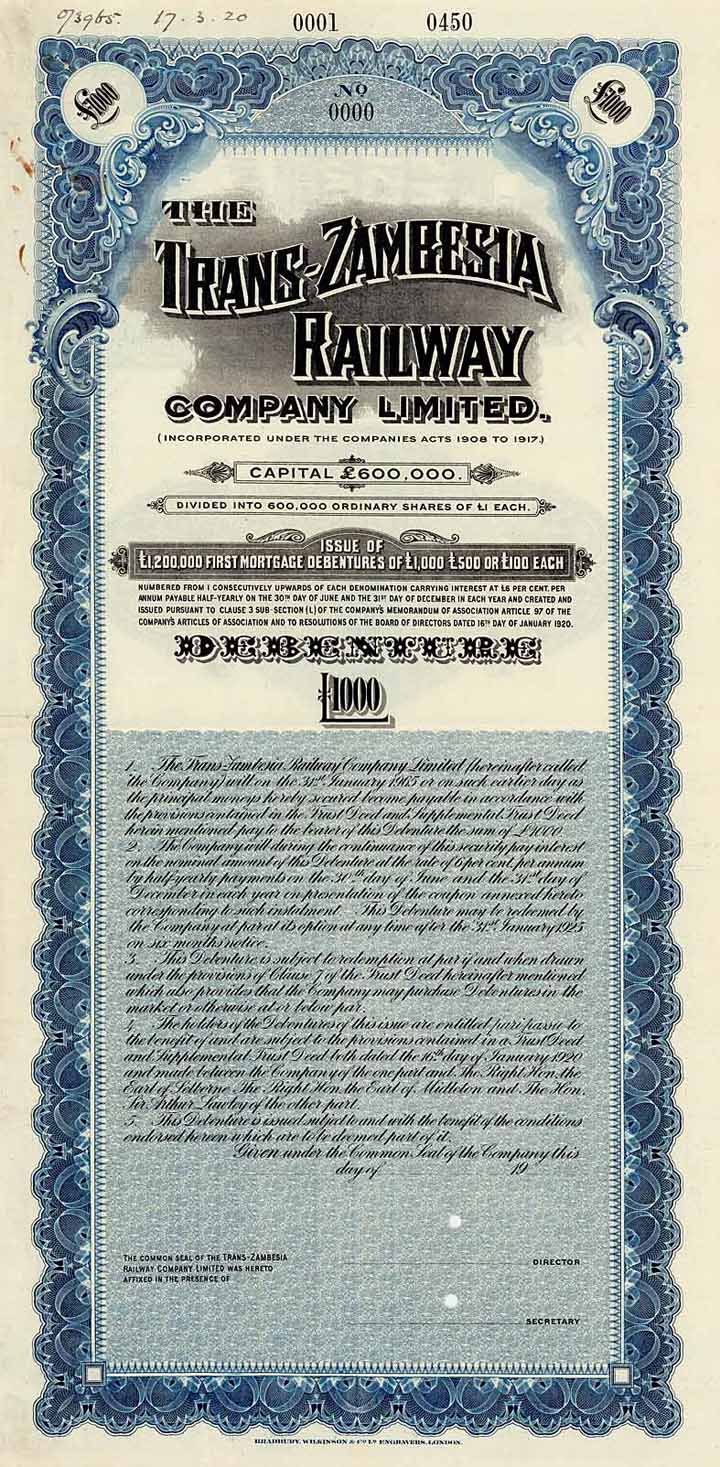 0/3965. 17.3.20 0001 0450
£1000 £1000
No
0000
THE
TRANS-ZAMBESIA
RAILWAY
COMPANY LIMITED.
(INCORPORATED UNDER THE COMPANIES ACTS 1908 TO 1917.)
CAPITAL £600,000.
DIVIDED INTO 600,000 ORDINARY SHARES OF £1 EACH.
ISSUE OF
£1,200,000 FIRST MORTGAGE DEBENTURES OF £1,000 £500 OR £100 EACH
NUMBERED FROM 1 CONSECUTIVELY UPWARDS OF EACH DENOMINATION CARRYING INTEREST AT £6 PER CENT. PER
ANNUM PAYABLE HALF-YEARLY ON THE 30TH DAY OF JUNE AND THE 31ST DAY OF DECEMBER IN EACH YEAR AND CREATED AND
ISSUED PURSUANT TO CLAUSE 3 SUB-SECTION (L) OF THE COMPANY'S MEMORANDUM OF ASSOCIATION ARTICLE 97 OF THE
COMPANY'S ARTICLES OF ASSOCIATION AND TO RESOLUTIONS OF THE BOARD OF DIRECTORS DATED 16TH DAY OF JANUARY 1920.
DEBENTURE
£1000
1. The Trans-Zambesia Railway Company Limited (hereinafter called
"the Company") will on the 31st January 1965 or on such earlier day as
the principal moneys hereby secured become payable in accordance with
the provisions contained in the Trust Deed and Supplemental Trust Deed
herein mentioned pay to the bearer of this Debenture the sum of £1000
2. The Company will during the continuance of this security pay interest
on the nominal amount of this Debenture at the rate of 6 per cent. per annum
by half-yearly payments on the 30th day of June and the 31st day of
December in each year on presentation of the coupon annexed hereto
corresponding to such instalment. This Debenture may be redeemed by
the Company at par at its option at any time after the 31st January 1925
on six months notice.
3. This Debenture is subject to redemption at par if and when drawn
under the provisions of Clause 7 of the Trust Deed hereinafter mentioned
which also provides that the Company may purchase Debentures in the
market or otherwise at or below par.
4. The holders of the Debentures of this issue are entitled pari passu to
the benefit of and are subject to the provisions contained in a Trust Deed
and Supplemental Trust Deed both dated the 16th day of January 1920
and made between the Company of the one part and The Right Hon. the
Earl of Selborne The Right Hon. the Earl of Midleton and The Hon.
Sir Arthur Lawley of the other part.
5. This Debenture is issued subject to and with the benefit of the conditions
endorsed hereon which are to be deemed part of it.
Given under the Common Seal of the Company this
day of 19
THE COMMON SEAL OF THE TRANS-ZAMBESIA
RAILWAY COMPANY LIMITED WAS HERETO
AFFIXED IN THE PRESENCE OF
DIRECTOR
SECRETARY
BRADBURY, WILKINSON & Co. Ld. ENGRAVERS, LONDON.